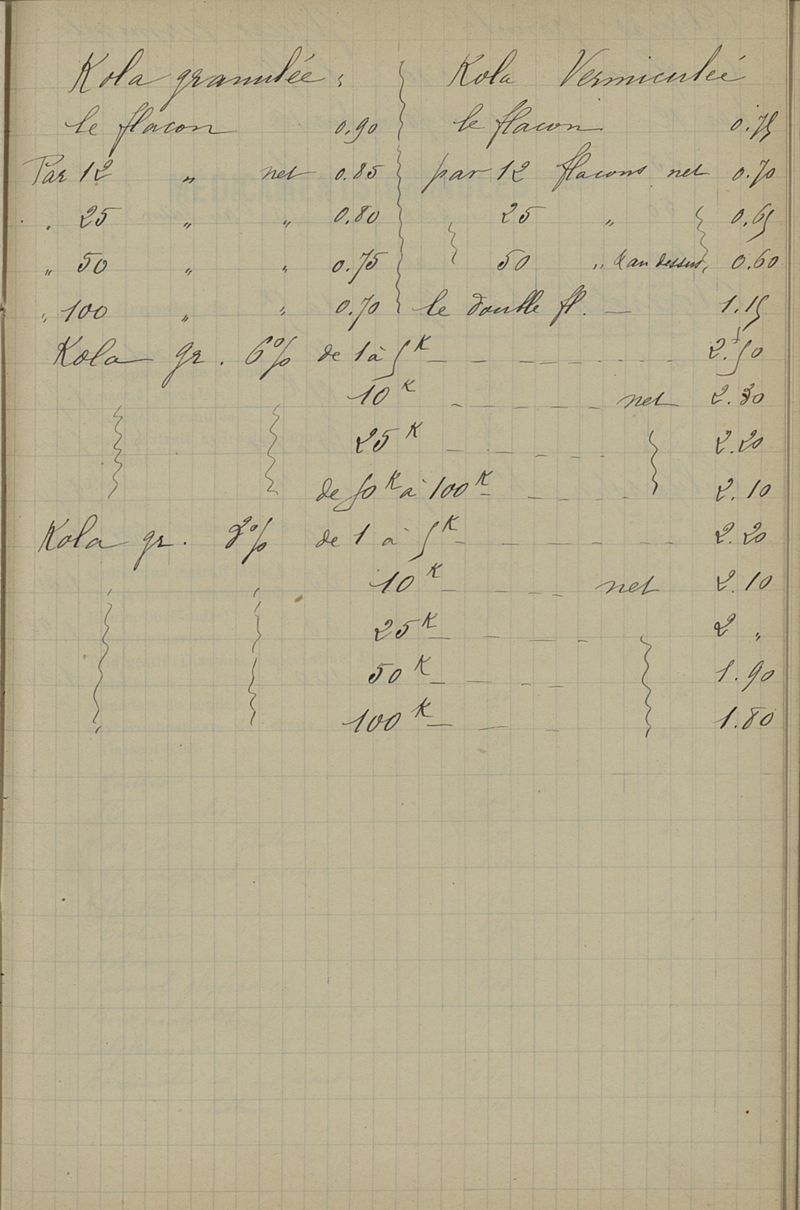 Kola granulée :
le flacon 0.90
Par 12 " net 0.85
" 25 " " 0.80
" 50 " " 0.75
" 100 " " 0.70
Kola Vermiculée
le flacon 0.75
par 12 flacons net 0.70
25 " 0.65
50 " & au dessus, 0.60
le double fl. — 1.15
Kola gr. 6% de 1 à 5 K — 2.50
10 K — net 2.30
25 K — 2.20
de 50 K à 100 K — 2.10
Kola gr. 2% de 1 à 5 K — 2.20
10 K — net 2.10
25 K — 2 "
50 K — 1.90
100 K — 1.80